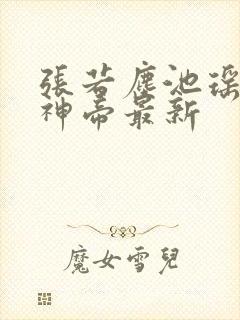 張若塵池瑤
神帝最新
魔女雪兒